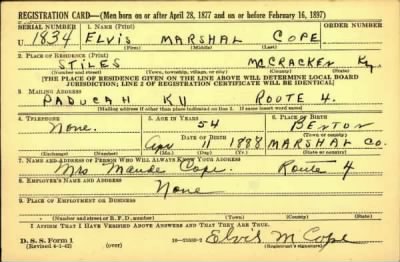 REGISTRATION CARD—(Men born on or after April 28, 1877 and on or before February 16, 1897)
SERIAL NUMBER 1. NAME (Print)
U 1834 ELVIS MARSHAL COPE
(First) (Middle) (Last)
2. PLACE OF RESIDENCE (Print)
STILES McCRACKEN Ky.
(Number and street) (Town, township, village, or city) (County) (State)
[THE PLACE OF RESIDENCE GIVEN ON THE LINE ABOVE WILL DETERMINE LOCAL BOARD
JURISDICTION; LINE 2 OF REGISTRATION CERTIFICATE WILL BE IDENTICAL]
3. MAILING ADDRESS
PADUCAH KY ROUTE 4.
[Mailing address if other than place indicated on line 2. If same insert word same]
4. TELEPHONE 5. AGE IN YEARS 6. PLACE OF BIRTH
None. 54 BENTON
DATE OF BIRTH (Town or county)
Apr 11 1888 MARSHAL CO.
(Exchange) (Number) (Mo.) (Day) (Yr.) (State or country)
7. NAME AND ADDRESS OF PERSON WHO WILL ALWAYS KNOW YOUR ADDRESS
Mrs Maude Cope. Route 4
8. EMPLOYER'S NAME AND ADDRESS
None
9. PLACE OF EMPLOYMENT OR BUSINESS
(Number and street or R. F. D. number) (Town) (County) (State)
I AFFIRM THAT I HAVE VERIFIED ABOVE ANSWERS AND THAT THEY ARE TRUE.
D. S. S. Form 1
(Revised 4-1-42) (over) Elvis M Cope
(Registrant's signature)